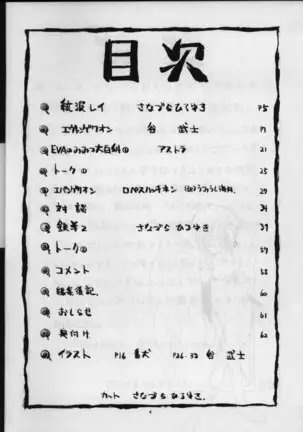 目次
綾波レイ さなづらひろゆき P5
エヴァンゲリオン 谷 武士 17
EVAのひみつ大百科① アストラ 21
トーク① 25
エバンゲリオン 29
対談 34
鉄拳2 さなづらひろゆき 39
トーク② 57
コメント 58
編集後記 60
おしらせ 61
奥付け 62
イラスト P16 P26.33 谷 武士
カット さなづらひろゆき.
4